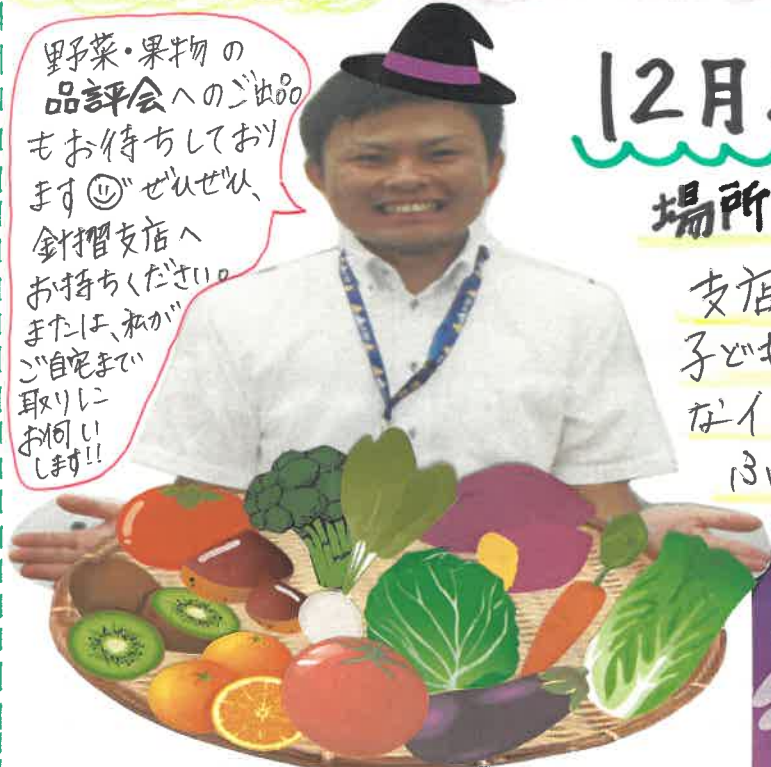 野菜・果物の
品評会へのご出品
もお待ちしており
ます ぜひぜひ、
針摺支店へ
お持ちください。
または、私が
ご自宅まで
取りに
お伺い
します!!
12月
場所
支店
子ど
なイ